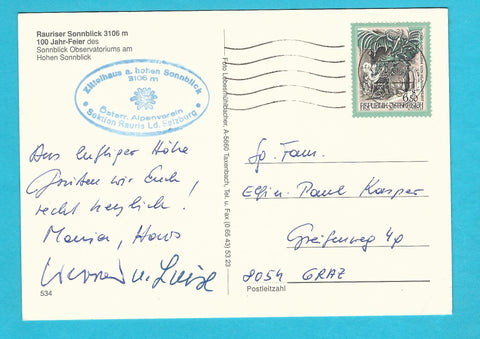 Rauriser Sonnblick 3106 m
100 Jahr-Feier des
Sonnblick Observatoriums am
Hohen Sonnblick
Zittelhaus a. hohen Sonnblick
3106 m
Österr. Alpenverein
Sektion Rauris Ld. Salzburg
Aus luftiger Höhe
Grüßen wir Euch,
recht herzlich.
Maria, Hans
u. Luise
534
A-5660 Taxenbach, Tel. u. Fax (0 65 43) 53 23
REPUBLIK ÖSTERREICH
6.50
Fam.
Paul Kasper
Greifenweg
8054 GRAZ
Postleitzahl